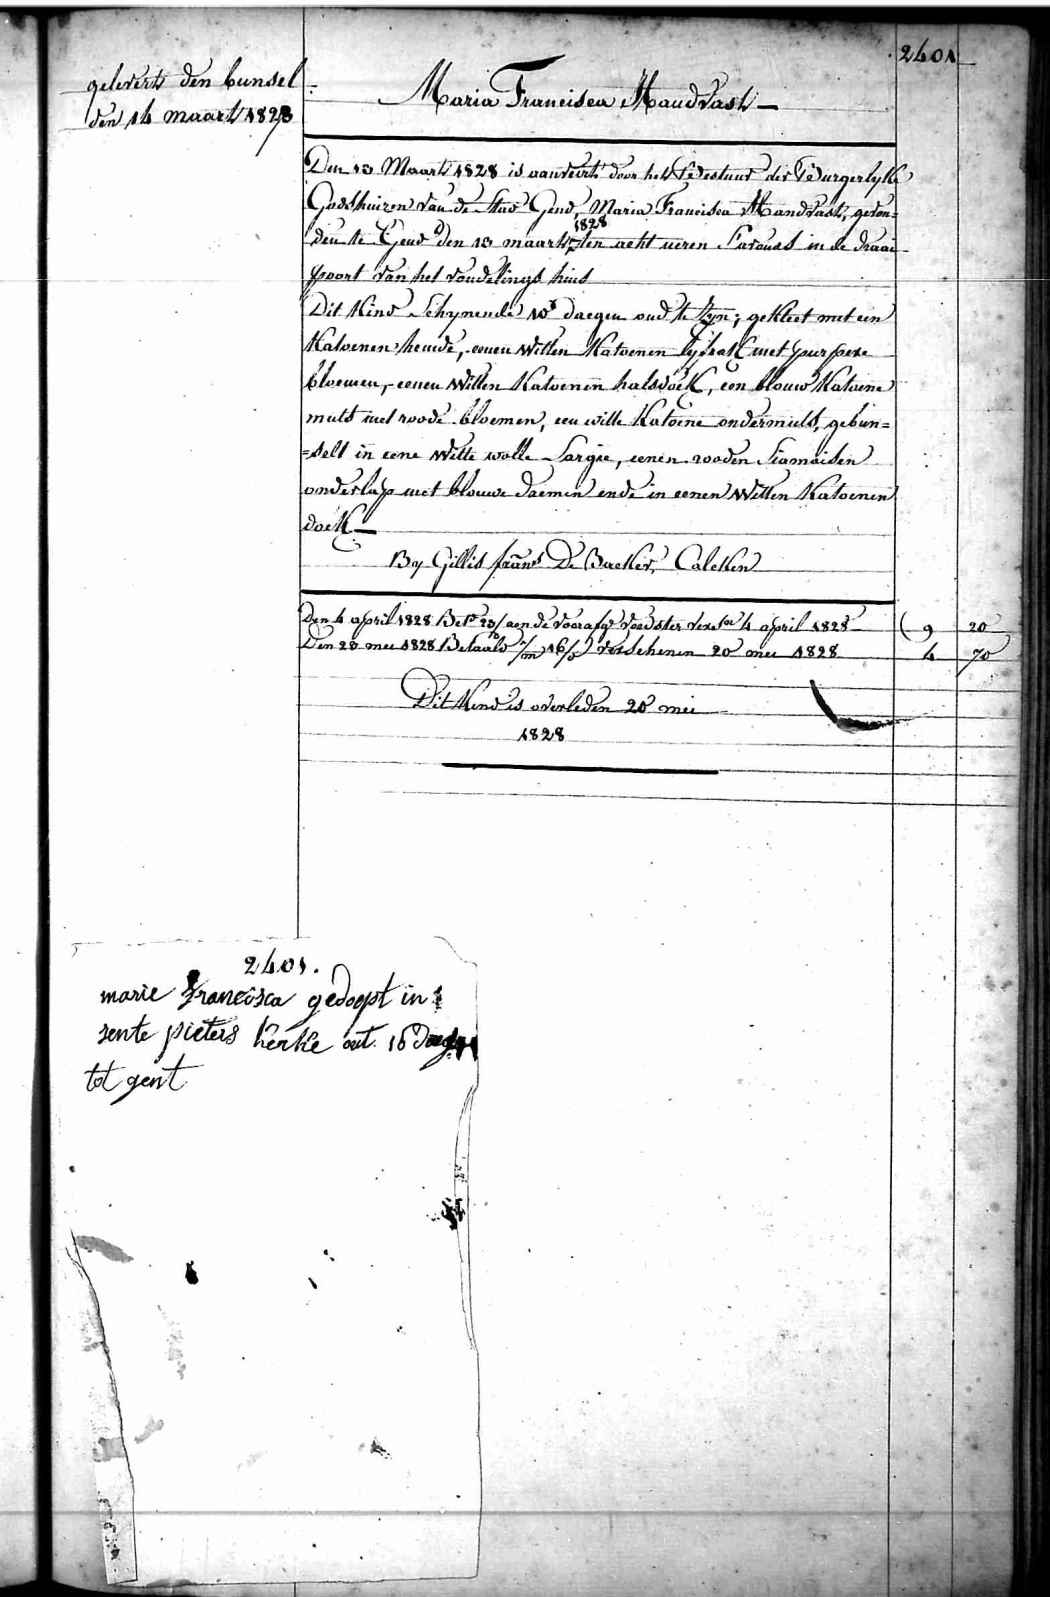 2401
geleverts den bunsel
den 14 maart 1828
Maria Francisca Handvast
Den 13 Maart 1828 is aanveirt door het Bestuur der Burgerlyke
Godshuizen van de Stad Gend, Maria Francisca Handvast, gevon=
den te Gend den 13 maart 1828 ten acht ueren s'avonds in de draai
poort van het vondelings huis
Dit Kind Schynende 10 daegen oud te Zyn; gekleet met een
Katoenen hemde, eenen Witten Katoenen lyfrak met purpere
bloemen, eenen Witten Katoenen halsdoek, een blouw Katoene
muts met roode bloemen, een witte Katoene ondermuts, gebun=
=selt in eene Witte wolle Sargie, eenen rooden Siamoisen
onderlap met blouwe daemen ende in eenen Witten Katoenen
doek
By Gillis frans De Bucker, Calcken
Den 4 april 1828 Bet. 23/ aen de voorafg. voedster 4 april 1828 9 20
Den 28 mei 1828 Betaald 16/ verschenen 20 mei 1828 4 70
Dit Kind is overleden 20 mei
1828
2401.
marie francisca gedoopt in
sente pieters kerke out 16 daegen
tot gent